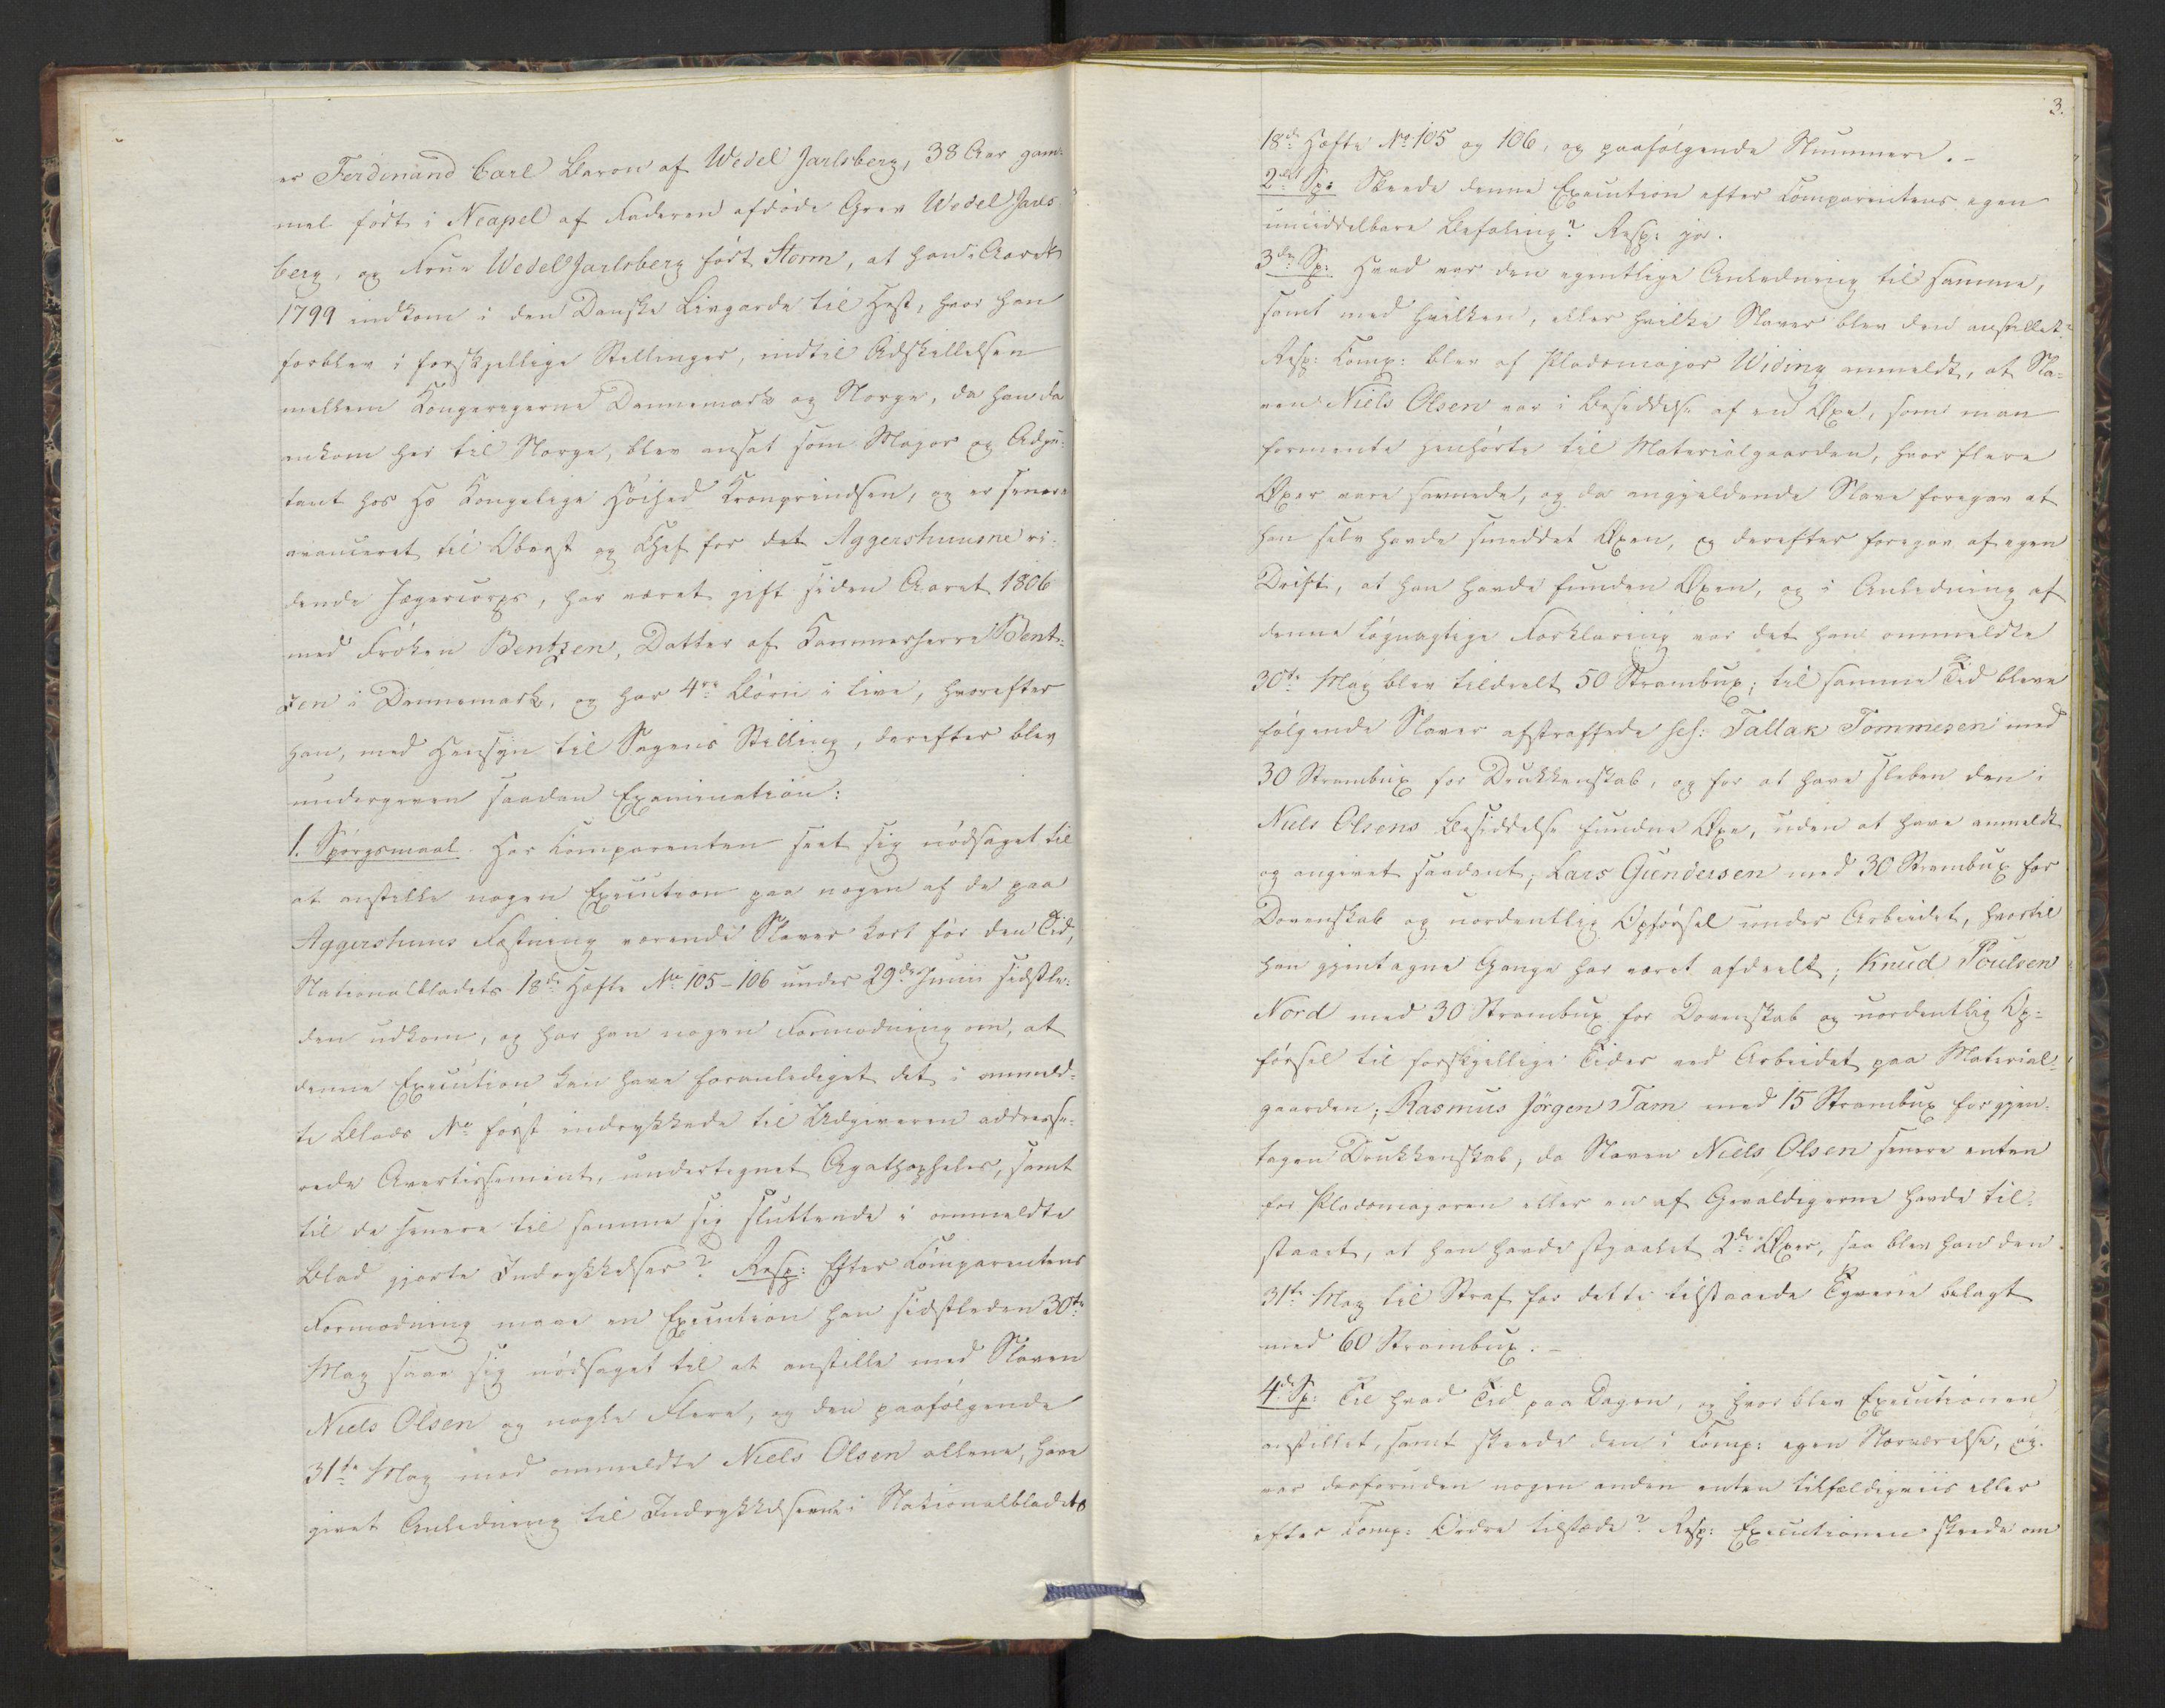 er Ferdinand Carl Baron af Wedel Jarlsberg, 38 Aar gam-
mel født i Neapel af Faderen afdøde Grev Wedel Jarls
berg, og Frue Wedel Jarlsberg født Storm, at han i Aaret
1799 indkom i den Danske Livgarde til Hest, hvor han
forblev i forskjellige Stillinger, indtil Adskillelsen
mellem Kongerigerne Dannemark og Norge, da han da
ankom her til Norge, blev ansat som Major og Adju-
tant hos Hs Kongelige Høihed Kronprindsen, og er senere
avanceret til Oberst og Chef for det Aggershuusne ri-
dende Jægercorps, har været gift siden Aaret 1806
med Frøken Bentzen, Datter af Kammerherre Bent-
zen i Dannemark, og har 4re Børn i Live, hvorefter
han, med Hensyn til Sagens Stilling, derefter blev
undergiven saadan Examination:
1. Spørgsmaal. Har Comparenten seet sig nødsaget til
at anstille nogen Execution paa nogen af de paa
Aggershuus Fæstning værende Slaver kort før den Tid,
Nationalbladets 18de Hæfte No 105-106 under 29de Junii sidstle-
den udkom, og har han nogen Formodning om, at
denne Execution kan have foranlediget det i anmeld-
te Blads No først indrykkede til Udgiveren addresse-
rede Avertissement, undertegnet Agathopheles, samt
til de senere til samme sig sluttende i anmeldte
Blad gjorte Indrykkelser? Resp: Efter Comparentens
Formodning maae en Execution han sidstleden 30te
May saae sig nødsaget til at anstille med Slaven
Niels Olsen og nogle Flere, og den paafølgende
31te May med ommeldte Niels Olsen allene, have
givet Anledning til Indrykkelserne i Nationalbladets
3.
18de Hæfte No 105 og 106, og paafølgende Nummere. -
2det Sp: Skeede denne Execution efter Comparentens egen
umiddelbare Befaling? Resp: ja.
3die Sp: Hvad var den egentlige Anledning til samme,
samt med hvilken, eller hvilke Slaver blev den anstillet?
Resp: Comp: blev af Pladsmajor Widing anmeldt, at Sla-
ven Niels Olsen var i Besiddelse af en Øxe, som man
formente henhørte til Materialgaarden, hvor flere
Øxer vare savnede, og da angjeldende Slave foregav at
han selv havde smeddet Øxen, og derefter foregav af egen
Drift, at han havde funden Øxen, og i Anledning af
denne løgnagtige Forklaring var det han ommeldte
30te May blev tildeelt 50 Strambux; til samme Tid bleve
følgende Slaver afstraffede sc: Tallak Tommesen med
30 Strambux for Drukkenskab, og for at have sleben den i
Niels Olsens Besiddelse fundne Øxe, uden at have anmeldt
og angivet saadant; Lars Gundersen med 30 Strambux for
Dovenskab og uordentlig Opførsel under Arbeidet, hvortil
han gjentagne Gange har været afdeelt; Knud Poulsen
Nord med 30 Strambux for Dovenskab og uordentlig Op-
førsel til forskjellige Tider ved Arbeidet paa Material-
gaarden; Rasmus Jørgen Tam med 15 Strambux for gjen-
tagen Drukkenskab, da Slaven Niels Olsen senere enten
for Pladsmajoren eller en af Gevaldigerne havde til-
staaet, at han havde stjaalet 2de Øxer, saa blev han den
31te May til Straf for dette tilstaaede Tyverie belagt
med 60 Strambux. -
4de Sp: Til hvad Tid paa Dagen, og hvor blev Executionen
anstillet, samt skeede den i Comp: egen Nærværelse, og
var desforuden nogen anden enten tilfældigviis eller
efter Comp: Ordre tilstæde? Resp: Executionen skeede om